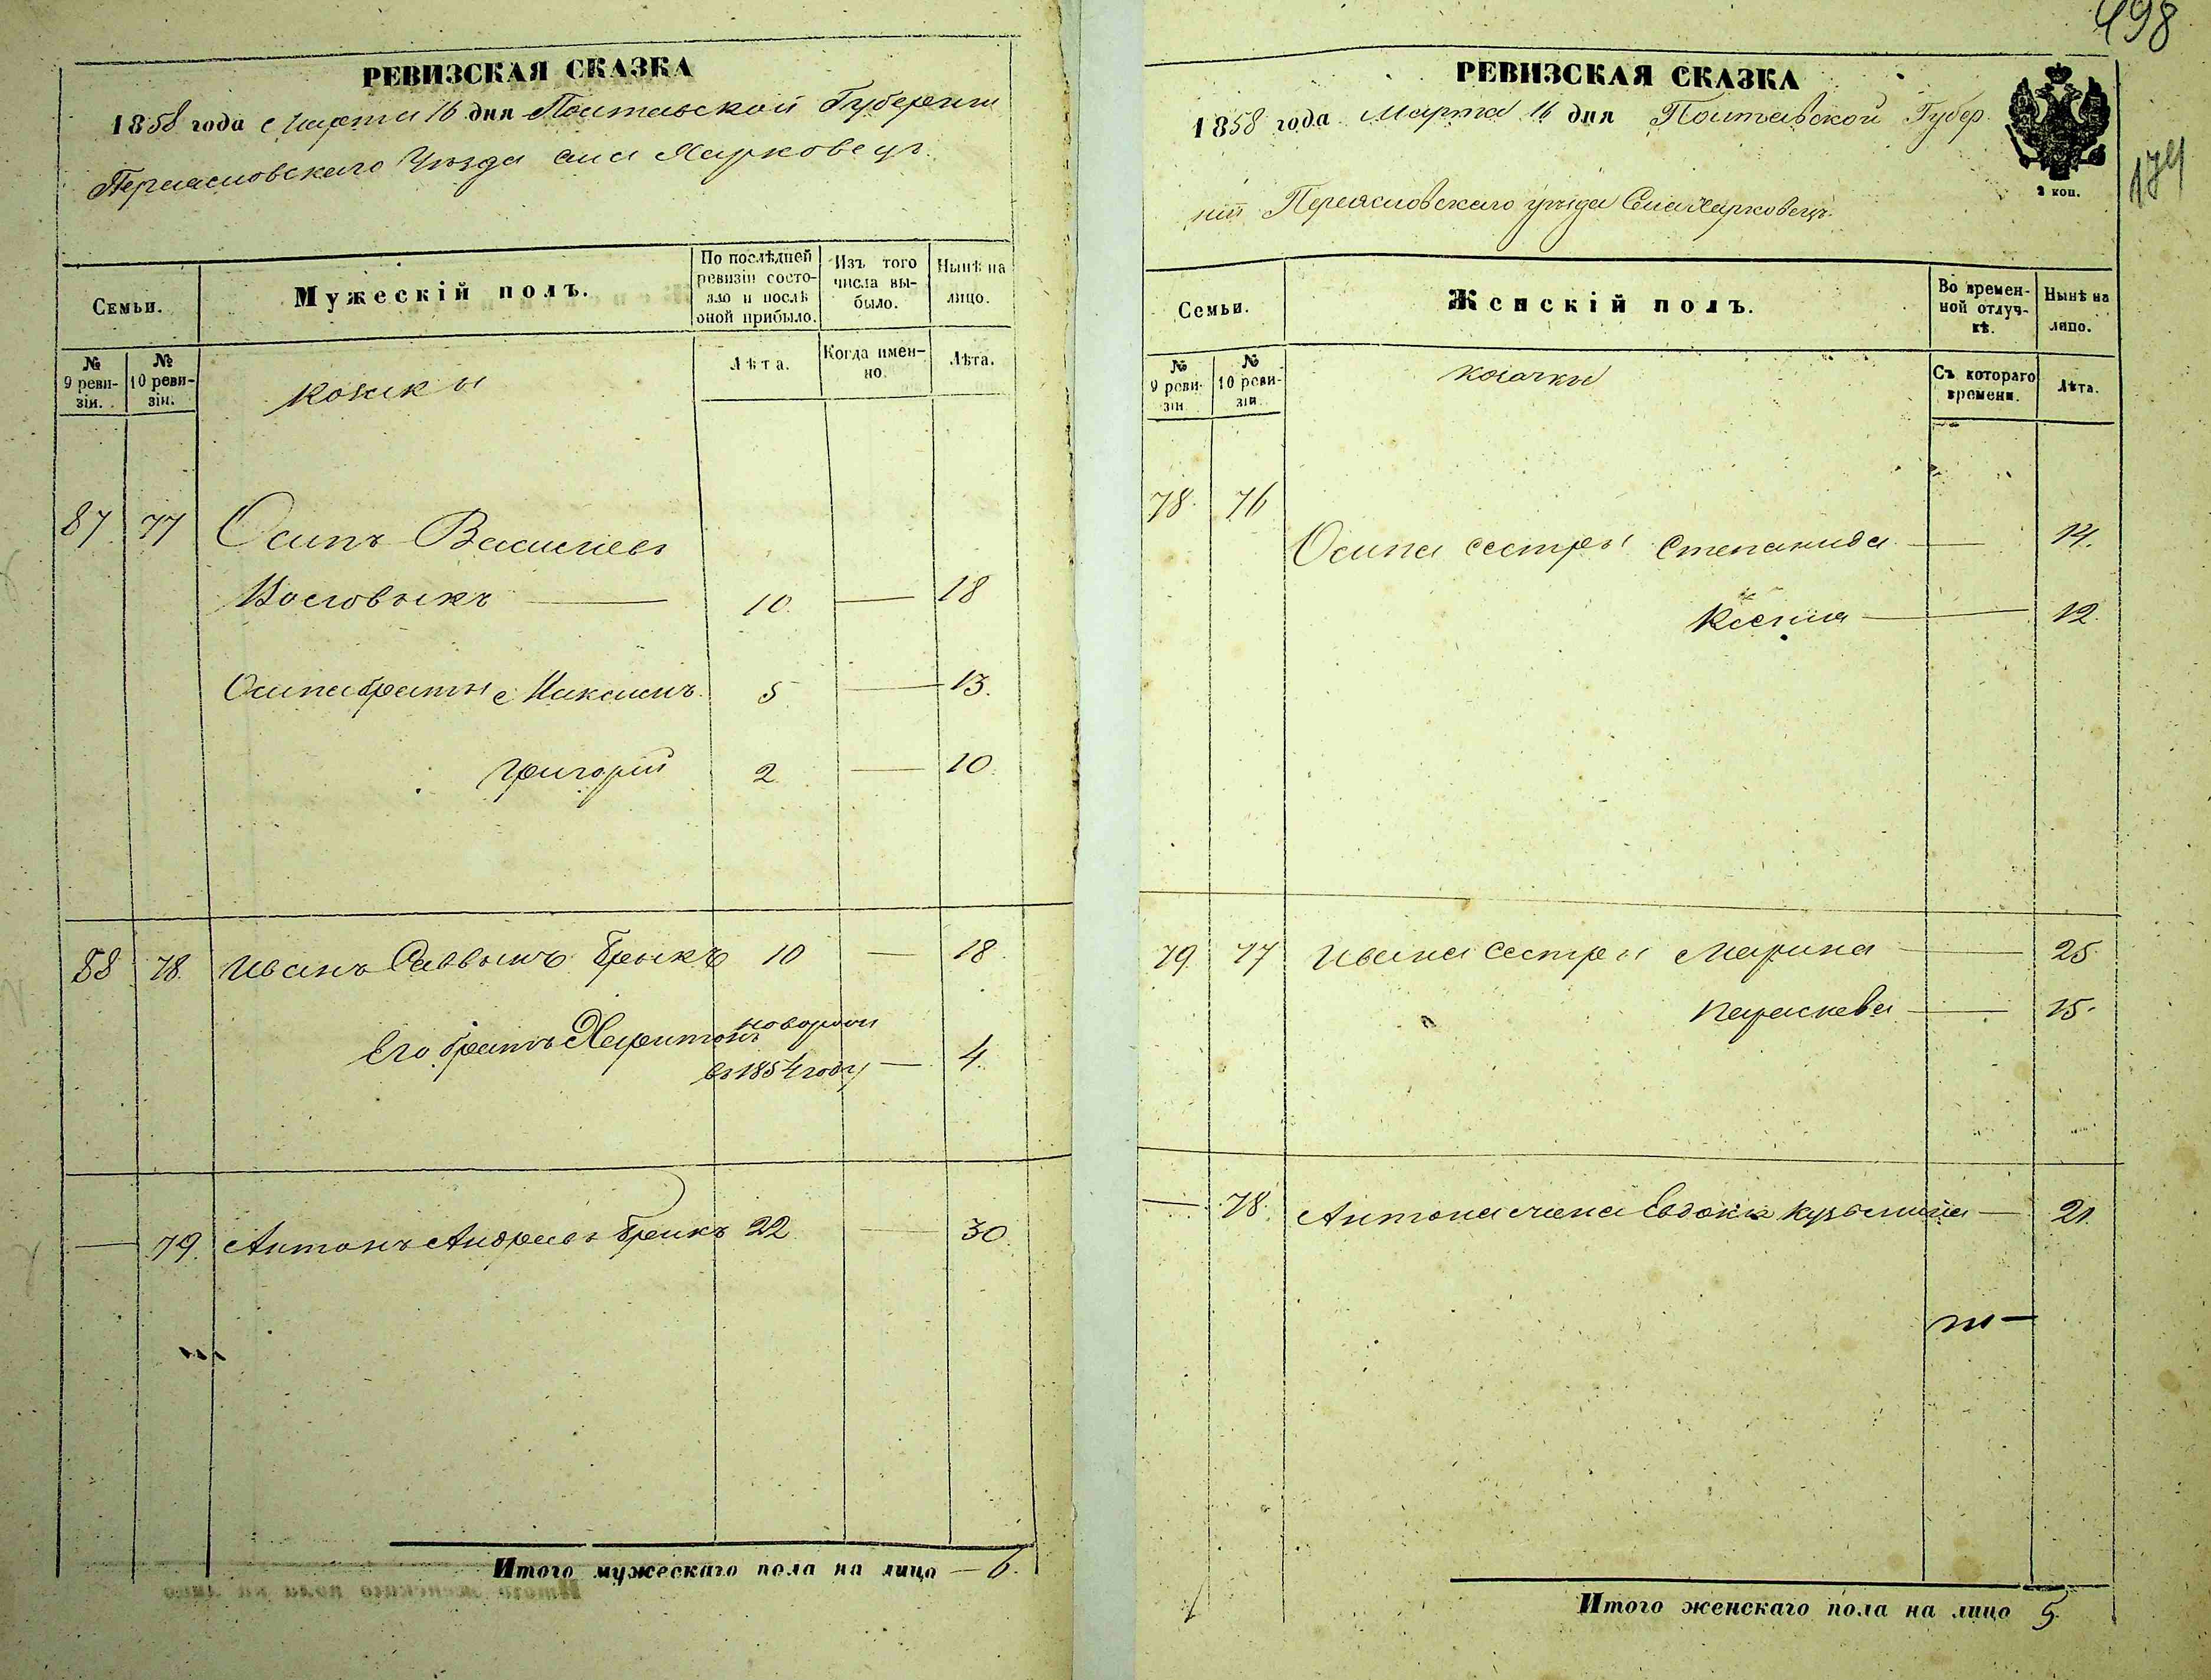 498
174
РЕВИЗСКАЯ СКАЗКА
1858 года Марта 16 дня Полтавской Губернии
Переясловскаго Уезда села Харковецъ
Семьи.
Мужескій полъ.
По послѣдней ревизіи состо-
яло и послѣ
оной прибыло.
Изъ того
числа вы-
было.
Нынѣ на
лицо.
№
9 реви-
зіи.
№
10 реви-
зіи.
козаки
Лѣта.
Когда имен-
но.
Лѣта.
87 77 Осипъ Васильевъ
10 — 18
Осипа браты Максимъ 5 — 13.
Григорій 2 — 10.
88 78. Иванъ Саввичъ Брыкъ 10 — 18
Его братъ Харитонъ новорож
въ 1854 году — 4.
— 79. Антонъ Андреевъ Брыкъ 22 — 30
Итого мужескаго пола на лицо — 6.
РЕВИЗСКАЯ СКАЗКА
1858 года Марта 16 дня Полтавской Губер
ніи Переясловскаго уезда Села Харковецъ.
2 коп.
Семьи.
Женскій полъ.
Во времен-
ной отлуч-
кѣ.
Нынѣ на
лицо.
№
9 реви-
зіи
№
10 реви-
зіи
козачки
Съ котораго
времени.
Лѣта.
78. 76
Осипа сестры Степанида — 14.
Ксенія — 12.
79. 77 Ивана сестры Марина — 25.
Параскева — 15.
— 78. Антона жена Евдокія Кузьмина — 21.
Итого женскаго пола на лицо 5.